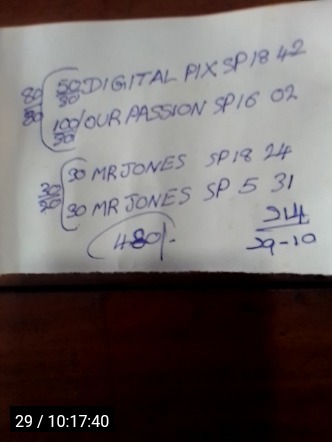 80/80 50/30 DIGITAL PIX SP 18 42
100/50 YOUR PASSION SP 16 02
30/20 30 MR JONES SP 18 24
30 MR JONES SP 5 31
480/-
214
29-10
29 / 10:17:40